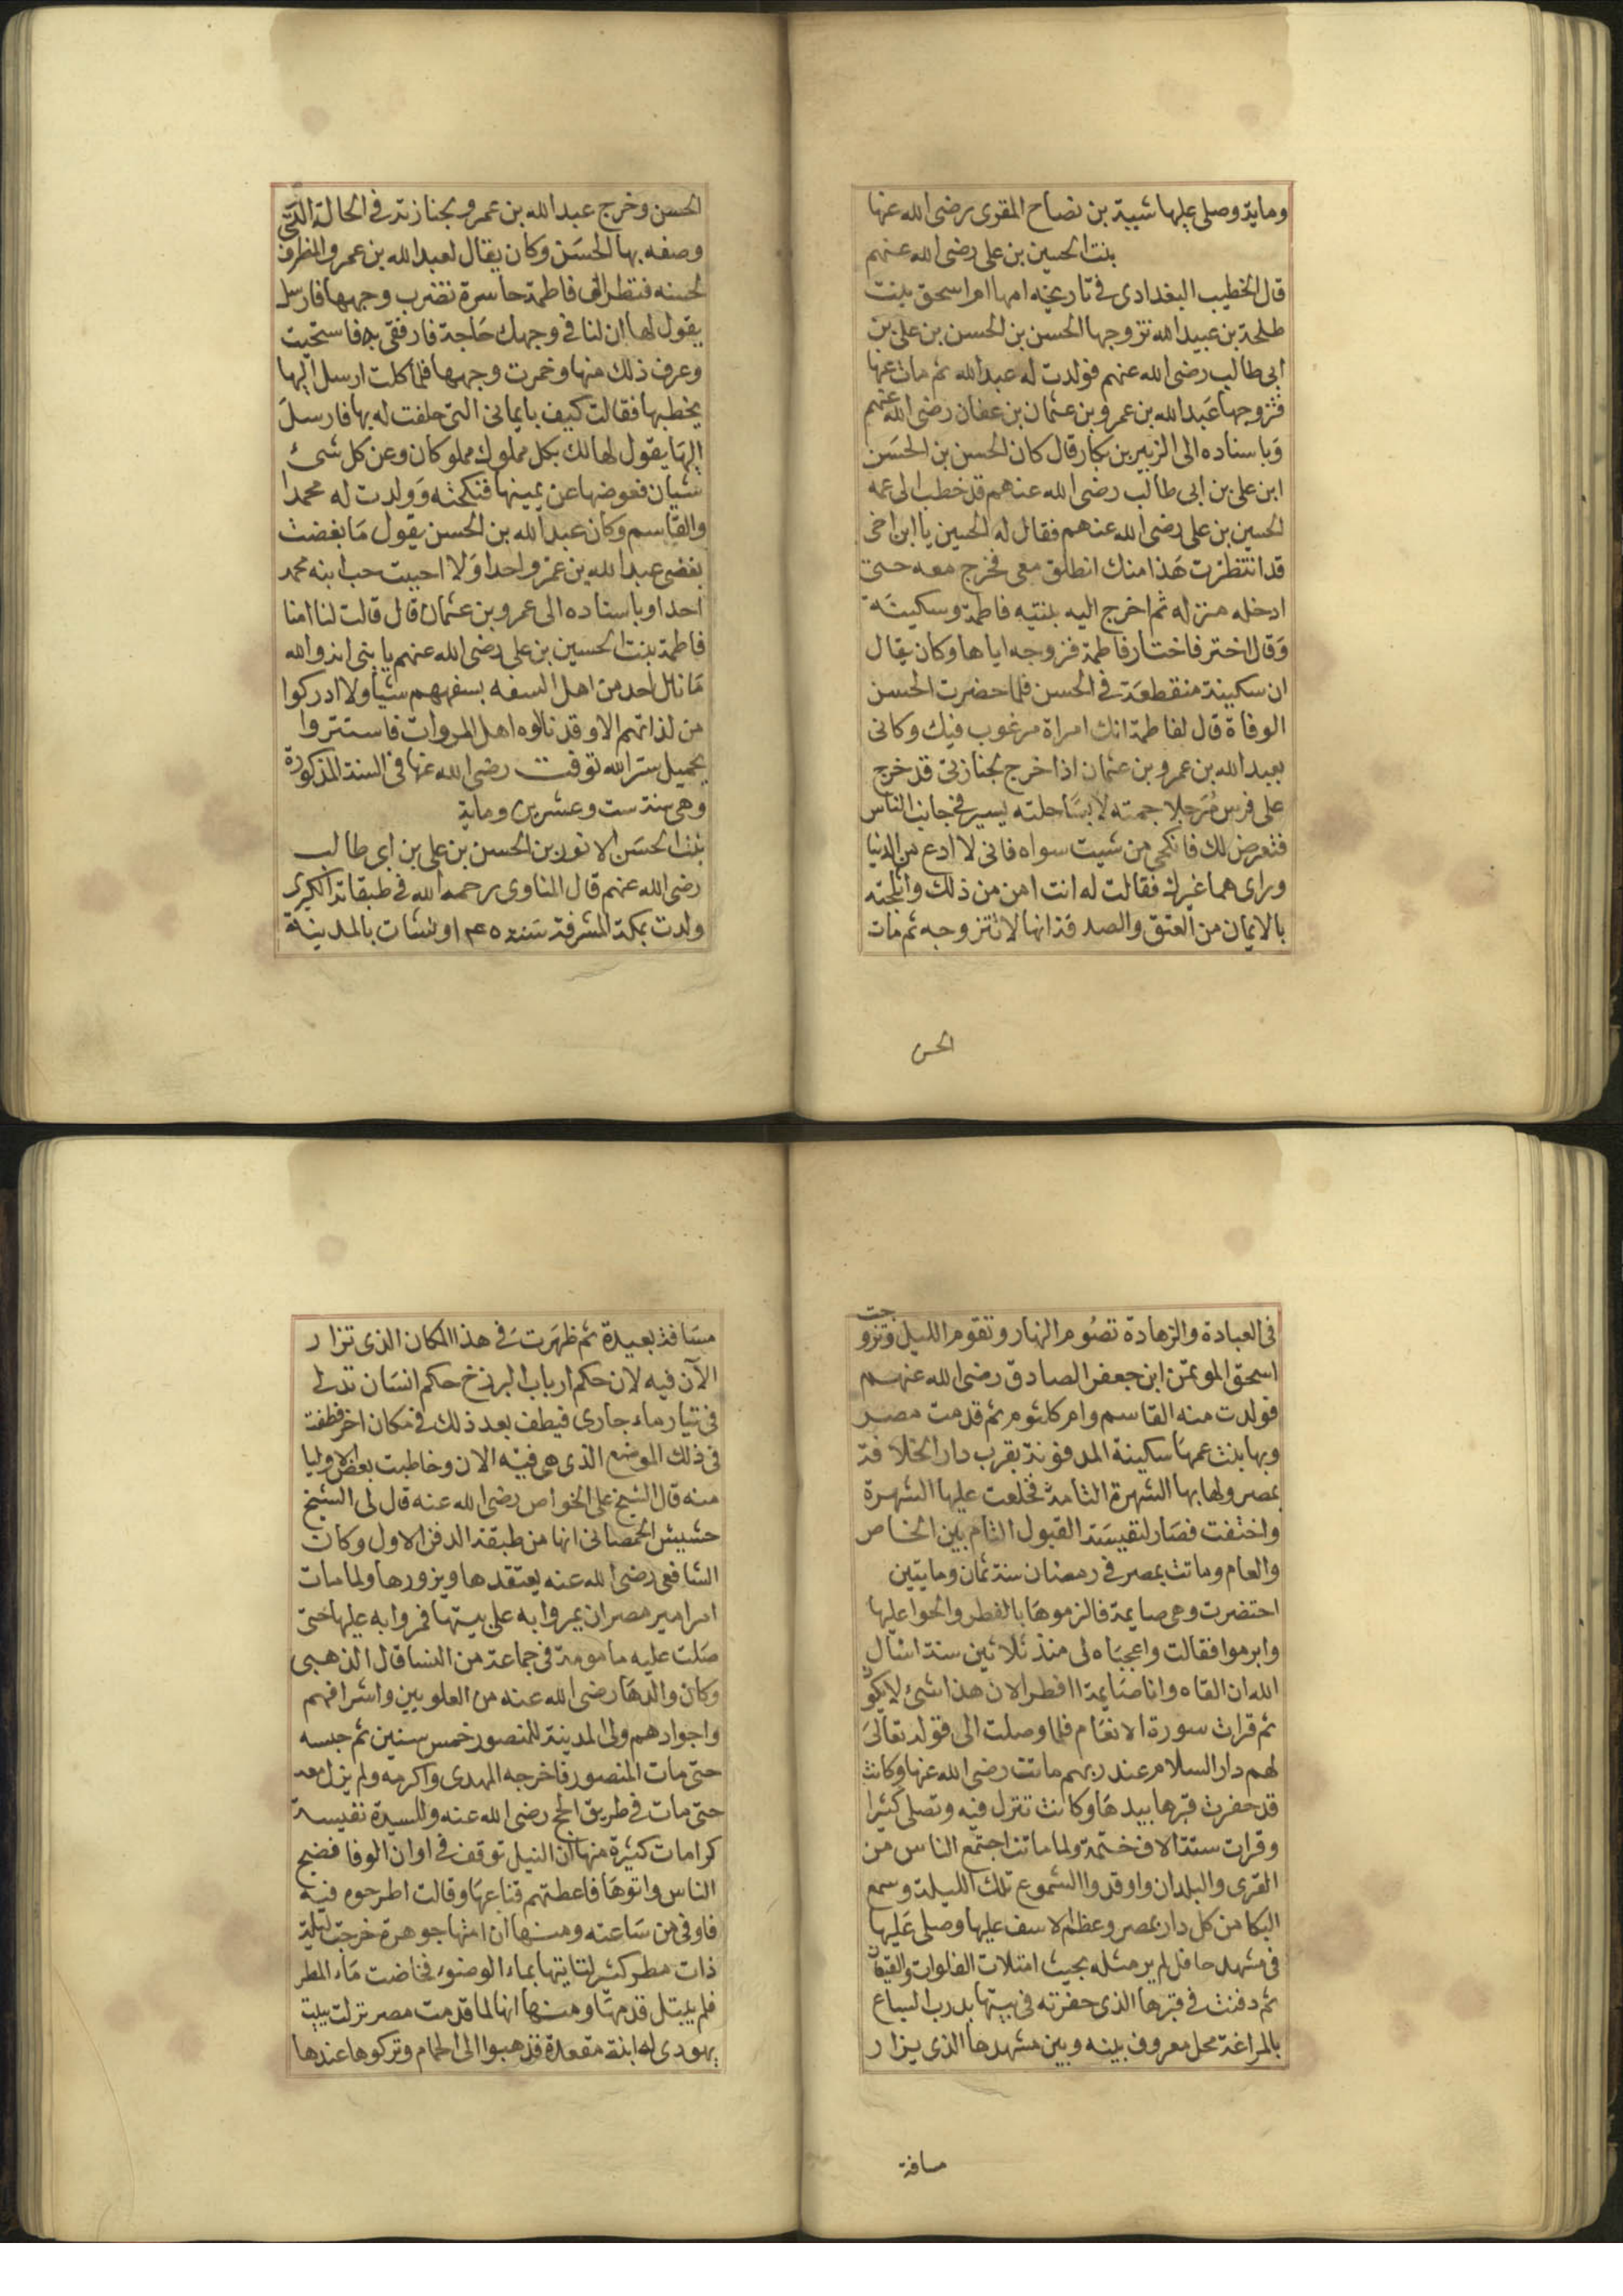 وماية وصلى عليها شيبة بن نصاح المقرى رضى الله عنها
بنت الحسين بن على رضى الله عنهم
قال الخطيب البغدادى فى تاريخه امها ام اسحق بنت
طلحة بن عبيد الله تزوجها الحسن بن الحسن بن على بن
ابى طالب رضى الله عنهم فولدت له عبد الله ثم مات عنها
فتزوجها عبد الله بن عمرو بن عثمان بن عفان رضى الله عنهم
وباسناده الى الزبير بن بكار قال كان الحسن بن الحسن
ابن على بن ابى طالب رضى الله عنهم قد خطب الى عمه
الحسين بن على رضى الله عنهم فقال له الحسين يا ابن اخى
قد انتظرت هذا منك انطلق معى فخرج معه حتى
ادخله منزله ثم اخرج اليه بنتيه فاطمة وسكينة
وقال اختر فاختار فاطمة فزوجه اياها وكان يقال
ان سكينة منقطعة فى الحسن فلما حضرت الحسن
الوفاة قال لفاطمة انك امراة مرغوب فيك وكانى
بعبد الله بن عمرو بن عثمان اذا خرج بجنازتى قد خرج
على فرس مرجلا جمته لابسا حلته يسير فى جانب الناس
فتعرض لك فانكحى من شيت سواه فانى لا ادع من الدنيا
وراى هما غيرك فقالت له انت امن من ذلك واثلجته
بالايمان من العتق والصدقة انها لا تتزوجه ثم مات
الحسن
الحسن وخرج عبد الله بن عمرو بجنازته فى الحالة التى
وصفه بها الحسن وكان يقال لعبد الله بن عمرو المطرف
لحسنه فنظر الى فاطمة حاسرة تضرب وجهها فارسل
يقول لها ان لنا فى وجهك حاجة فارفقى به فاستحيت
وعرف ذلك منها وخمرت وجهها فلما حلت ارسل اليها
يخطبها فقالت كيف بايمانى التى حلفت له بها فارسل
اليها يقول لها لك بكل مملوك مملوكان وعن كل شئ
شيان فعوضها عن يمينها فنكحته وولدت له محمدا
والقاسم وكان عبد الله بن الحسن يقول ما بغضت
بغضى عبد الله بن عمرو احدا ولا احببت حب ابنه محمد
احدا وباسناده الى عمرو بن عثمان قال قالت لنا امنا
فاطمة بنت الحسين بن على رضى الله عنهم يا بنى انه والله
ما نال احد من اهل السفه بسفههم شيأ ولا ادركوا
من لذاتهم الا وقد نالوه اهل المروات فاستتروا
بجميل ستر الله توفيت رضى الله عنها فى السنة المذكورة
وهى سنة ست وعشرين وماية
بنت الحسن الانور بن الحسن بن على بن ابى طالب
رضى الله عنهم قال المناوى رحمه الله فى طبقاته الكبرى
ولدت بمكة المشرفة سنة ١٤٥ ونشات بالمدينة
فى العبادة والزهادة تصوم النهار وتقوم الليل وتزوجت
اسحق الموتمن ابن جعفر الصادق رضى الله عنهم
فولدت منه القاسم وام كلثوم ثم قدمت مصر
وبها بنت عمها سكينة المدفونة بقرب دار الخلافة
بمصر ولها بها الشهرة التامة فخلعت عليها الشهرة
واختفت فصار لنفيسة القبول التام بين الخاص
والعام وماتت بمصر فى رمضان سنة ثمان ومايتين
احتضرت وهى صايمة فالزموها بالفطر والحوا عليها
وابرموا فقالت واعجباه لى منذ ثلاثين سنة اسال
الله ان القاه وانا صايمة اافطر الان هذا شئ لا يكون
ثم قرات سورة الانعام فلما وصلت الى قوله تعالى
لهم دار السلام عند ربهم ماتت رضى الله عنها وكانت
قد حفرت قبرها بيدها وكانت تنزل فيه وتصلى كثيرا
وقرات ستة الاف ختمة ولما ماتت اجتمع الناس من
القرى والبلدان واوقدوا الشموع تلك الليلة وسمع
البكا من كل دار بمصر وعظم الاسف عليها وصلى عليها
فى مشهد حافل لم ير مثله بحيث امتلات الفلوات والقيعان
ثم دفنت فى قبرها الذى حفرته فى بيتها بدرب السباع
بالمراغة محل معروف بينه وبين مشهدها الذى يزار
مسافة
مسافة بعيدة ثم ظهرت فى هذا المكان الذى تزار
الآن فيه لان حكم ارباب البرزخ حكم انسان تدلى
فى تيار ماء جارى فيطف بعد ذلك فى مكان اخر فطفت
فى ذلك الموضع الذى هى فيه الان وخاطبت بعض الاوليا
منه قال الشيخ على الخواص رضى الله عنه قال لى الشيخ
حشيش الحمصانى انها من طبقة الدفن الاول وكان
الشافعى رضى الله عنه يعتقدها ويزورها ولما مات
امر امير مصر ان يمروا به على بيتها فمروا به عليها حتى
صلت عليه مامومة فى جماعة من النسا قال الذهبى
وكان والدها رضى الله عنه من العلويين واشرافهم
واجوادهم ولى المدينة للمنصور خمس سنين ثم حبسه
حتى مات المنصور فاخرجه المهدى واكرمه ولم يزل معه
حتى مات فى طريق الحج رضى الله عنه وللسيدة نفيسة
كرامات كثيرة منها ان النيل توقف فى اوان الوفا فضج
الناس واتوها فاعطتهم قناعها وقالت اطرحوه فيه
فاوفى من ساعته ومنها ان امتها جوهرة خرجت ليلة
ذات مطر كثير لتاتيها بماء الوضوء فخاضت ماء المطر
فلم يبتل قدمها ومنها انها لما قدمت مصر نزلت ببيت
يهودى له ابنة مقعدة فذهبوا الى الحمام وتركوها عندها